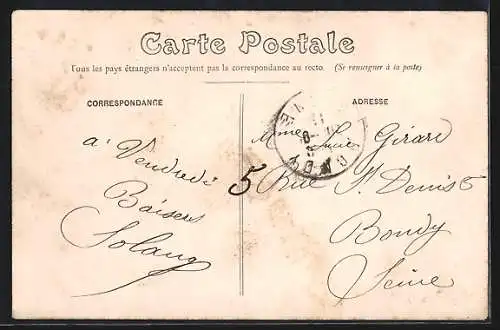 Carte Postale
Tous les pays étrangers n'acceptent pas la correspondance au recto. (Se renseigner à la poste)
CORRESPONDANCE
a Vendredi
Baisers
Solang
ADRESSE
Mme Girard
5 Rue St Denis
Bondy
Seine